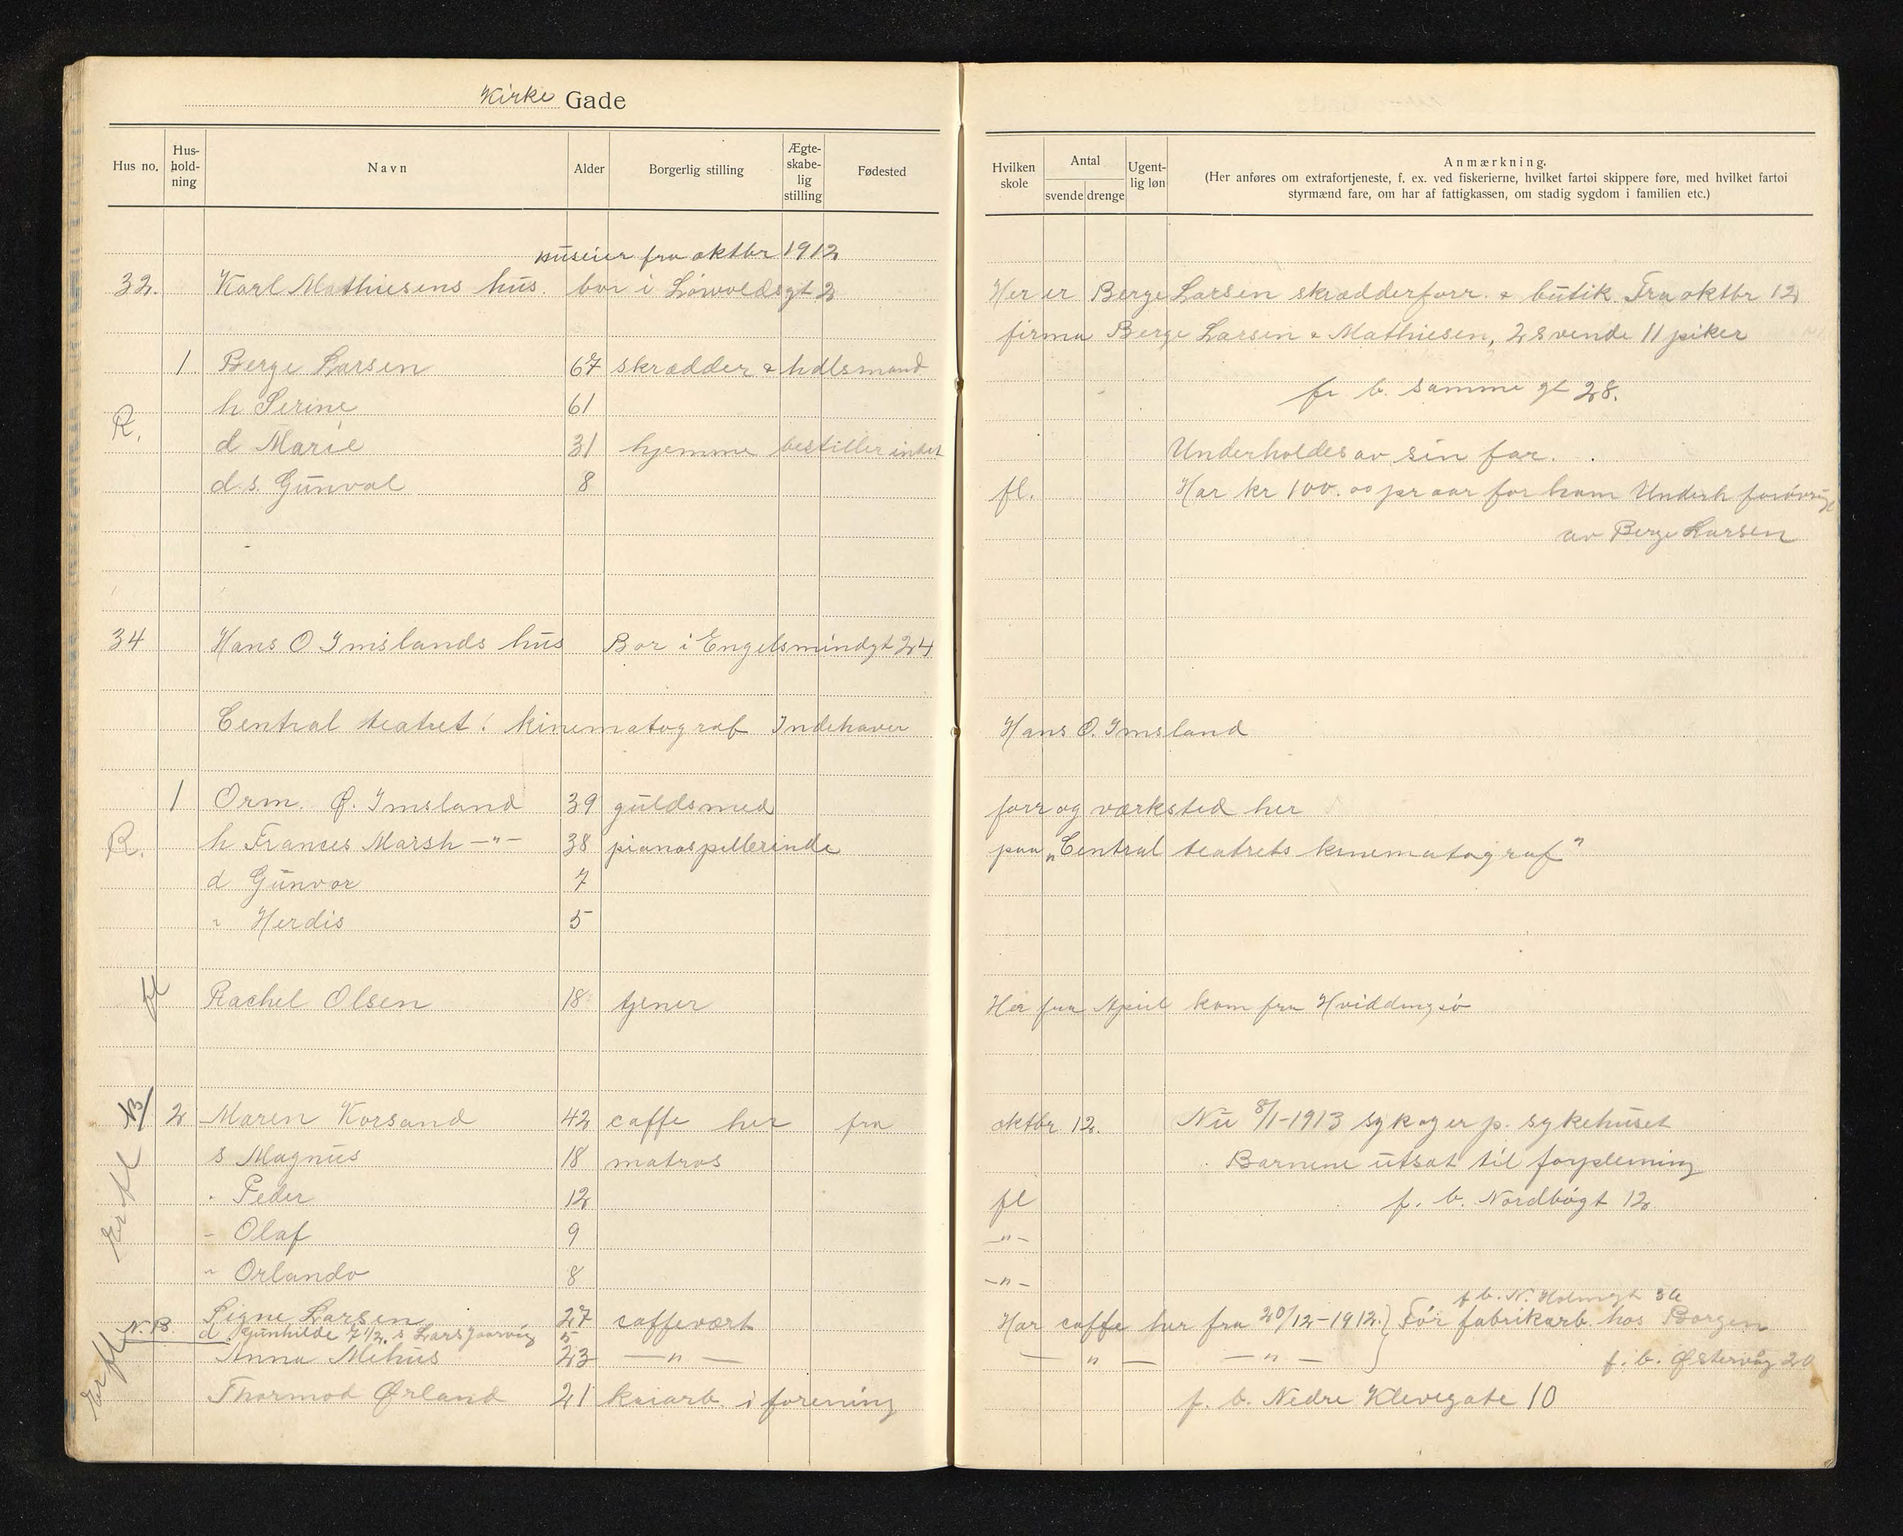 Kirke Gade
Hus no. Hus-hold-ning Navn Alder Borgerlig stilling Ægte-skabe-lig stilling Fødested
huseier fra oktbr 1912
32. Karl Mathiesens hus. bor i Løvvoldsgt 2
1 Berge Larsen 67 skrædder & hdlsmand
R. h Serine 61
d Marie 31 hjemme bestillerindet
d.s. Gunval 8
34 Hans O Imslands hus Bor i Engelsmindgt 24
Central teatret. kinematograf Indehaver
1 Orm. Ø. Imsland 39 guldsmed
R. h Frances Marsh —"— 38 pianospillerinde
d Gunvor 7
" Herdis 5
fl Rachel Olsen 18 tjener
NB/ 2 Maren Korsand 42 caffe her fra
Er fl s Magnus 18 matros
" Peder 12
" Olaf 9
" Orlando 8
Signe Larsen 27 caffevært
N.B. d Gunhilde 7 1/2. s Lars 5
Er fl Anna Mehus 23 —"—
Thormod Ørland 21 kaiarb. i forening
Hvilken skole Antal svende drenge Ugent-lig løn Anmærkning.
(Her anføres om extrafortjeneste, f. ex. ved fiskerierne, hvilket fartøi skippere føre, med hvilket fartøi
styrmænd fare, om har af fattigkassen, om stadig sygdom i familien etc.)
Her er Berge Larsen skrædderforr. & butik Fra oktbr 12
firma Berge Larsen & Mathiesen, 2 svende 11 piker
fr b. samme gt 28.
Underholdes av sin far.
fl. Har kr 100.00 pr aar for ham Underh forøvrigt
av Berge Larsen
Hans O. Imsland
forr og værksted her
paa „Central teatrets kinematograf"
Her fra April kom fra Hviddingsø
oktbr 12. Nu 8/1-1913 syk og er p. sykehuset
Barnene utsat til forpleining
fl f. b. Nordbøgt 12
—"—
—"—
f b. N. Holmegt 36
Har caffe her fra 20/12-1912.} Før fabrikarb. hos Borgen
— " — — " — f. b. Østervåg 20
f. b. Nedre Klevegate 10